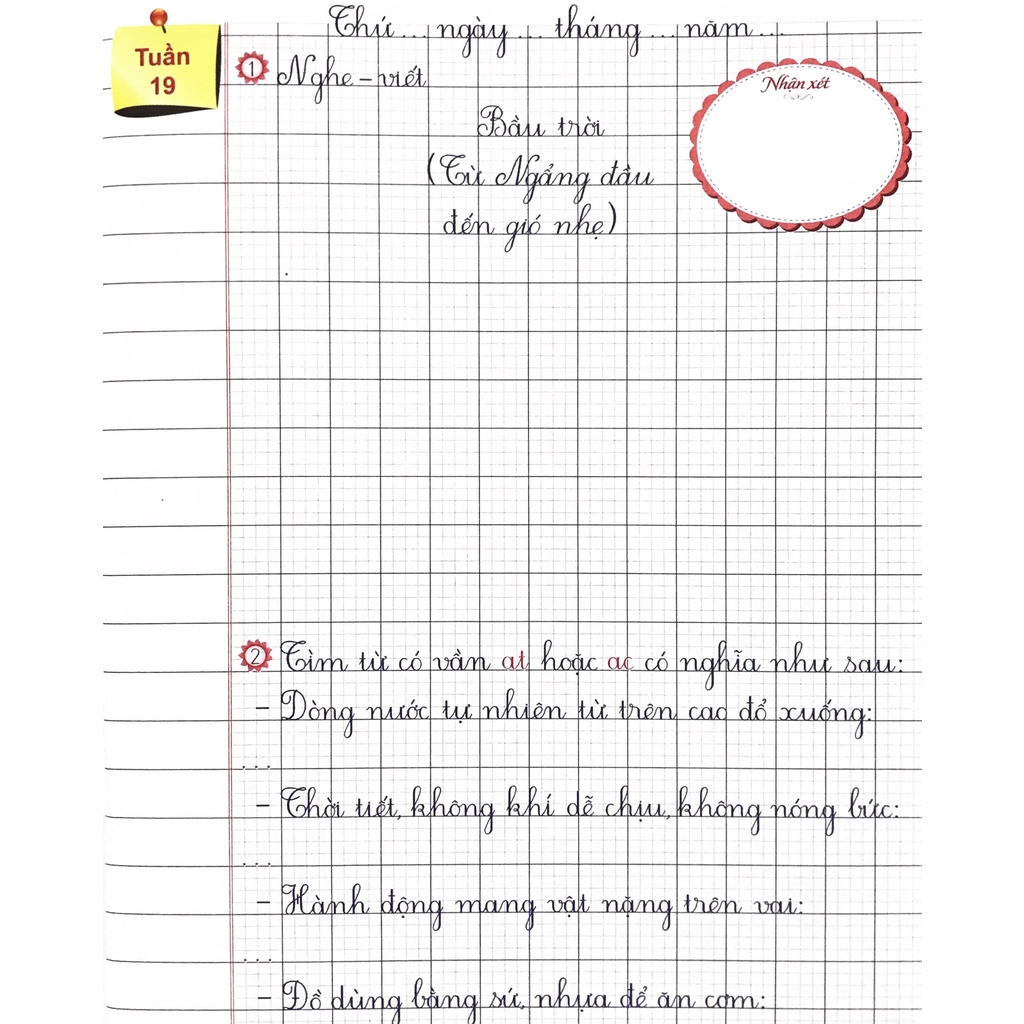 Thứ... ngày... tháng... năm...
Tuần
19
1 Nghe - viết
Nhận xét
Bầu trời
(Từ Ngẩng đầu
đến gió nhẹ)
2 Tìm từ có vần at hoặc ac có nghĩa như sau:
- Dòng nước tự nhiên từ trên cao đổ xuống:
...
- Thời tiết, không khí dễ chịu, không nóng bức:
...
- Hành động mang vật nặng trên vai:
...
- Đồ dùng bằng sứ, nhựa để ăn cơm: